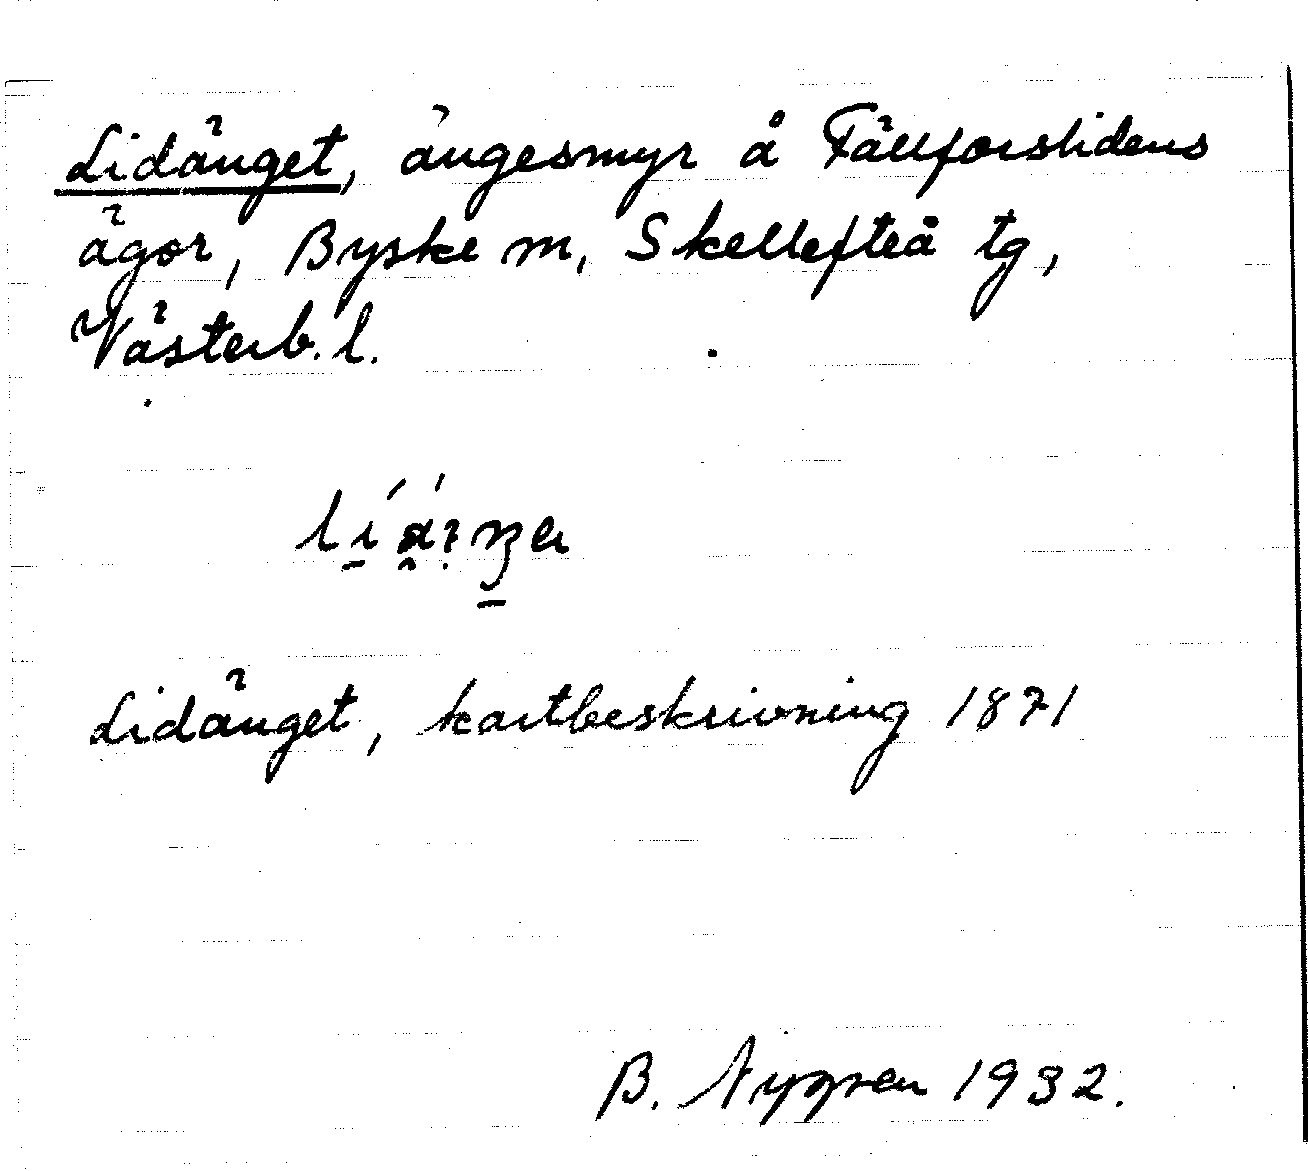 Lidänget, ängesmyr å Fällforslidens
ägor, Byske sn, Skellefteå tg,
Västerb. l.
Lidänget, kartbeskrivning 1871
B. Nygren 1932.